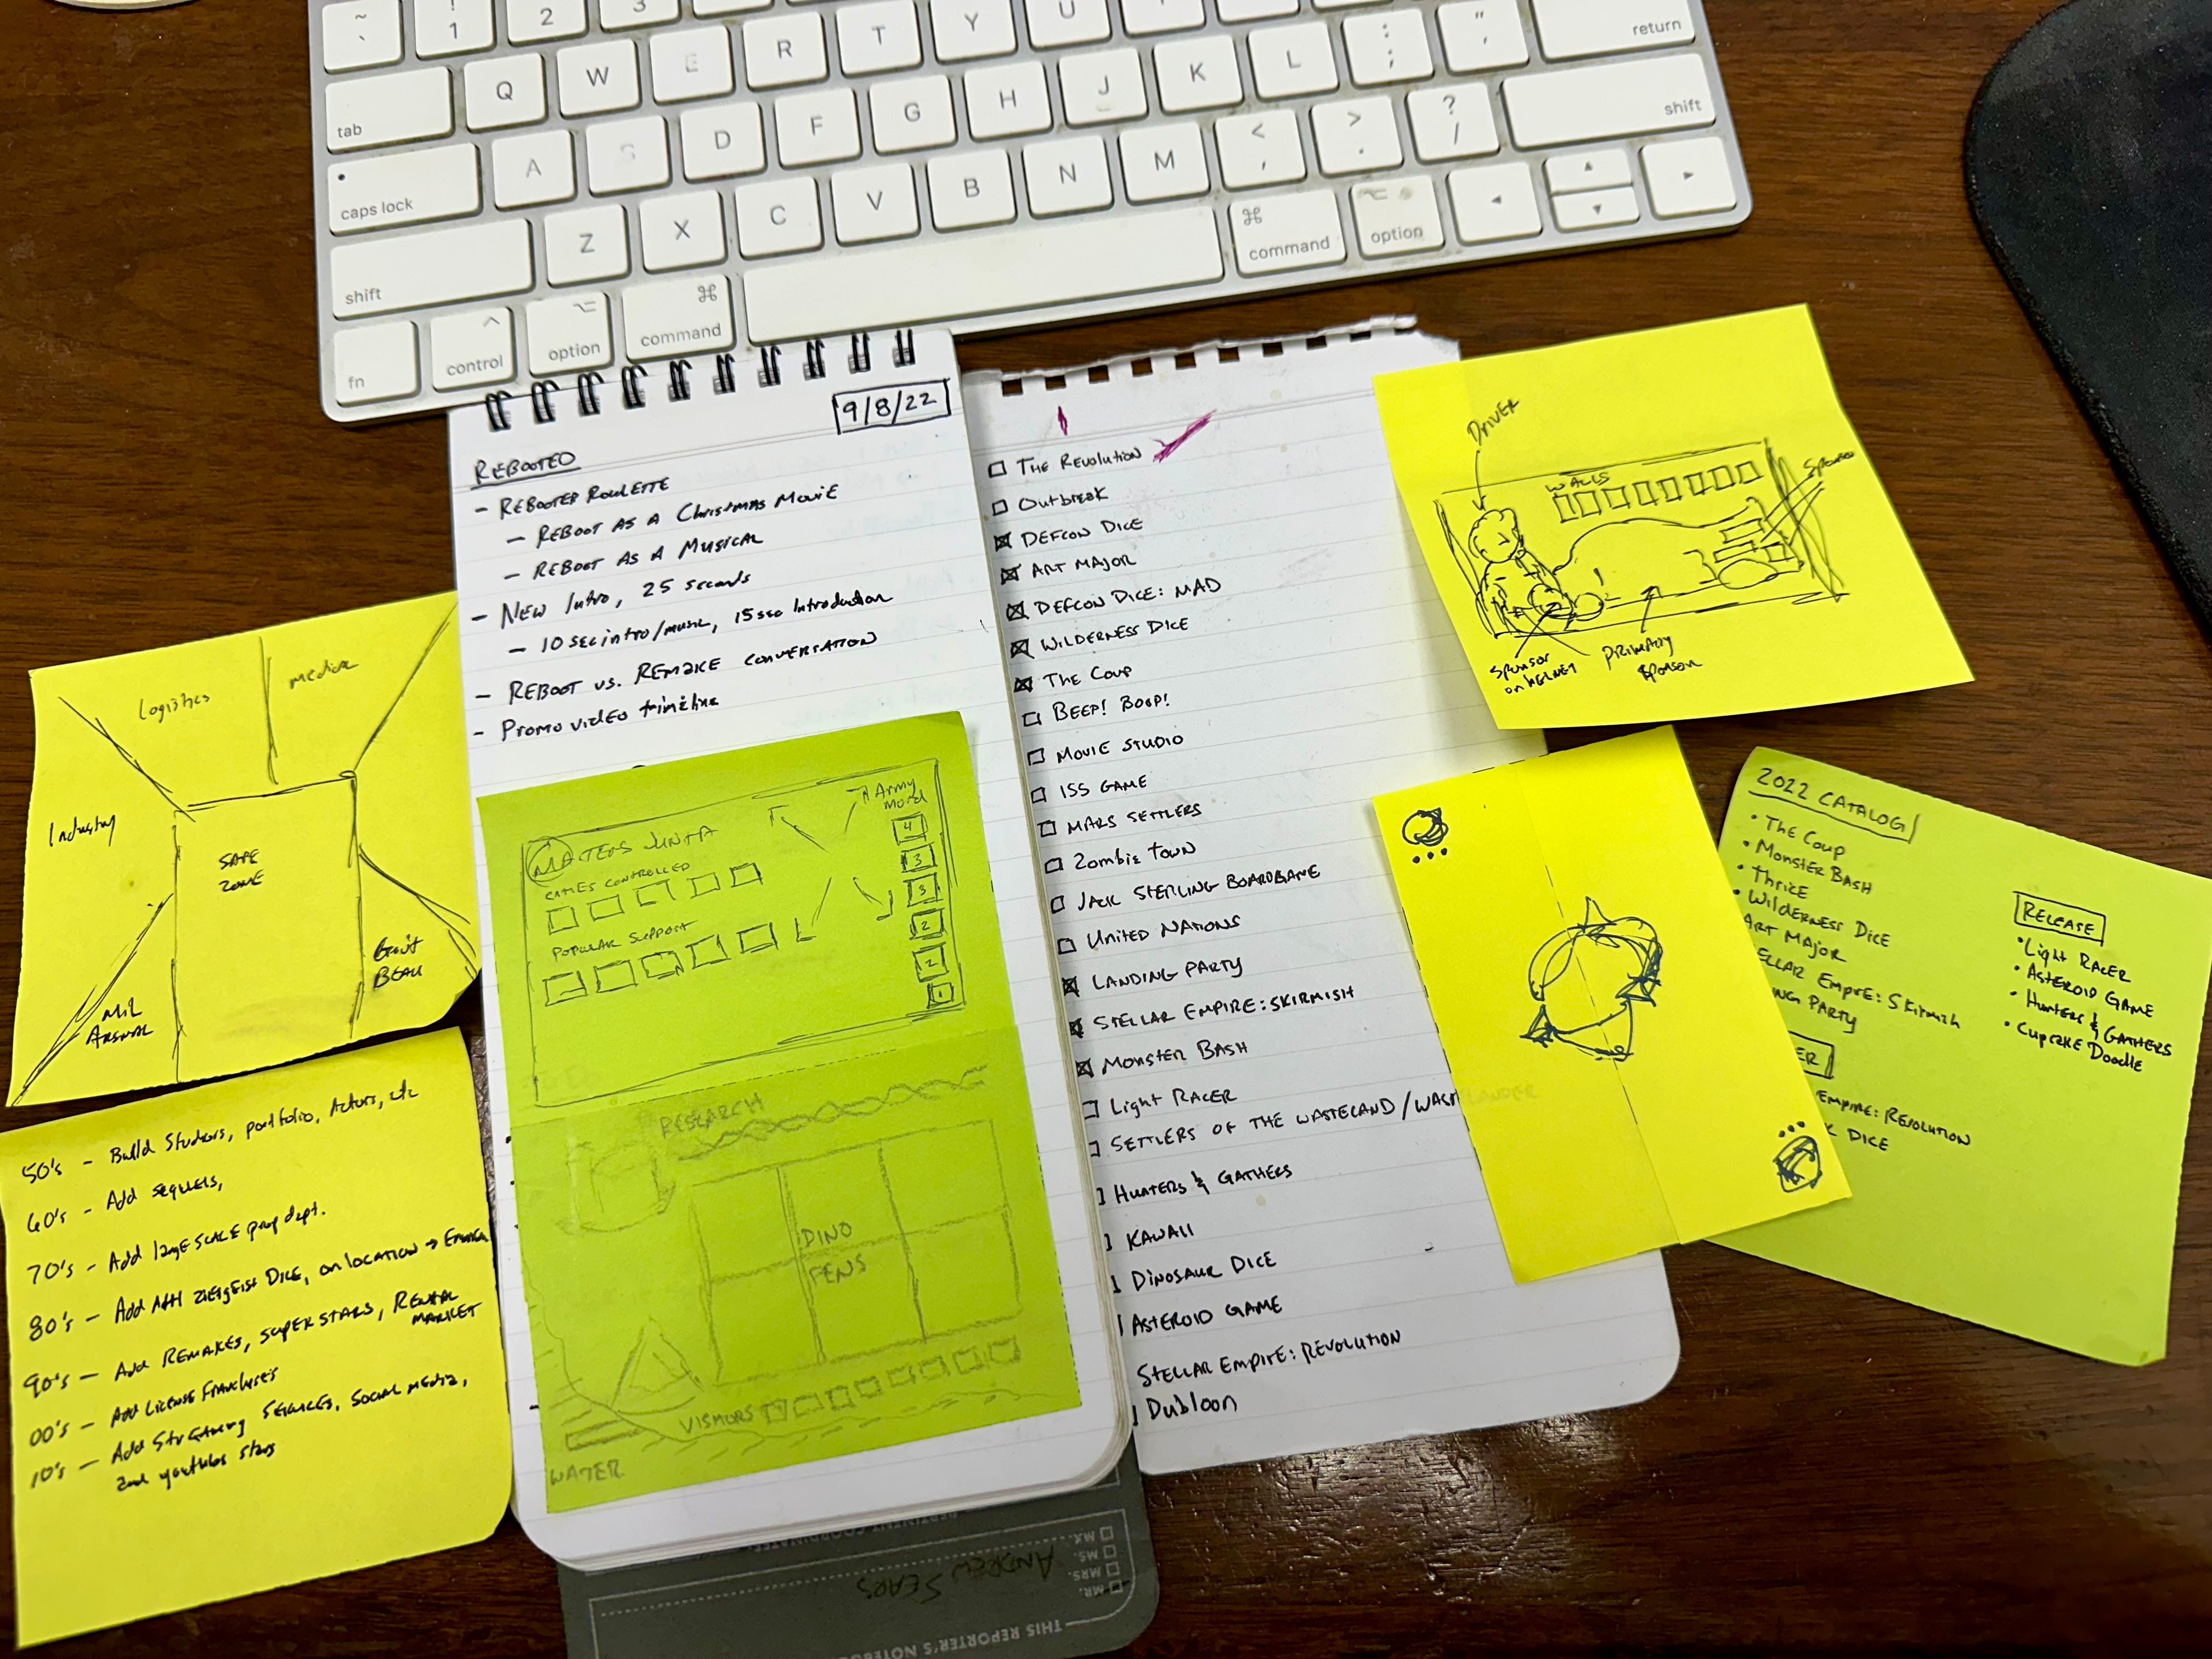 ~
`
!
1
2
3
tab
Q
W
E
R
T
Y
U
return
caps lock
A
S
D
F
G
H
J
K
L
:
;
"
'
shift
Z
X
C
V
B
N
M
<
,
>
.
?
/
shift
fn
control
option
command
command
option
9/8/22
REBOOTED
- REBOOTED ROULETTE
- REBOOT AS A Christmas Movie
- REBOOT AS A Musical
- New Intro, 25 seconds
- 10 sec intro/music, 15 sec Introduction
- REBOOT vs. REMAKE CONVERSATION
- Promo video timeline
The Revolution
Outbreak
DEFCON DICE
ART MAJOR
DEFCON DICE: MAD
WILDERNESS DICE
The Coup
BEEP! BOOP!
MOVIE STUDIO
ISS GAME
MARS SETTLERS
Zombie Town
JACK STERLING BOARDGAME
UNITED NATIONS
LANDING PARTY
STELLAR EMPIRE: SKIRMISH
MONSTER BASH
Light RACER
SETTLERS OF THE WASTELAND / WAST
HUNTERS & GATHERS
KAWAII
DINOSAUR DICE
ASTEROID GAME
STELLAR EMPIRE: REVOLUTION
Dubloon
DRIVER
WALLS
Sponsor
Sponsor
on HELMET
primary
sponsor
Logistics
medical
Industry
SAFE
ZONE
MIL
ARSENAL
Gov't
50's - Build Studios, portfolio, Actors, etc
60's - Add sequels,
70's - Add large SCALE prop dept.
80's - Add Zeitgeist Dice, on location →
90's - Add REMAKES, super stars, RENTAL
MARKET
00's - Add License Franchises
10's - Add Streaming Services, Social media,
and youtube stars
MATTENS JUNTA
Army
GAMES CONTROLLED
POPULAR SUPPORT
4
3
3
2
2
1
RESEARCH
DINO
PENS
VISITORS
WATER
2022 CATALOG
• The Coup
• Monster BASH
• Thrice
• Wilderness Dice
ART MAJOR
ELLAR EMPIRE: Skirmish
ING PARTY
ER
EMPIRE: REVOLUTION
K DICE
RELEASE
• Light RACER
• ASTEROID GAME
• Hunters & GATHERS
• Cupcake Doodle
MR.
MRS.
MS.
MX.
ANDREW SEARS
THIS REPORTER'S NOTEBOO